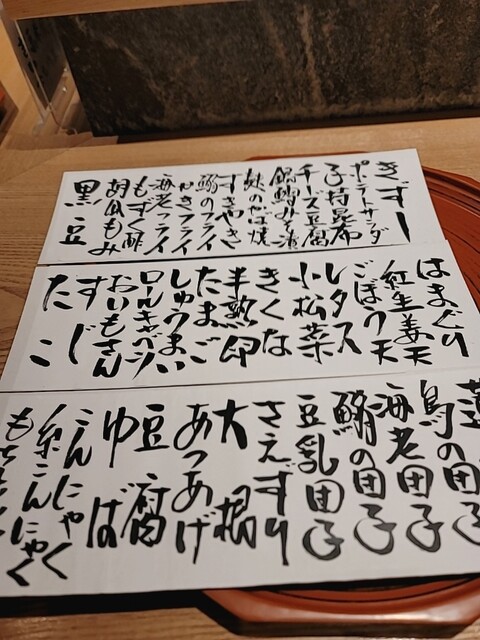 きずし
ポテトサラダ
子持昆布
チーズ豆腐
銀鱈みそ漬
すきやき
鰯のフライ
かきフライ
海老フライ
もずく酢
胡瓜もみ
黒豆
はまぐり
紅生姜天
ごぼう天
レタス
小松菜
きくな
半熟卵
たまご
しゅうまい
ロールキャベツ
おいもさん
すじ
たこ
鳥の団子
海老団子
鰯の団子
豆乳団子
さえずり
大根
あつあげ
豆腐
ゆば
こんにゃく
糸こんにゃく